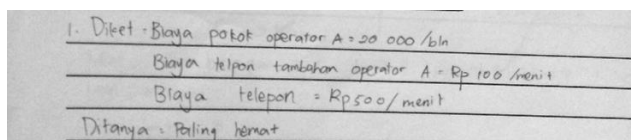 1. Diket : Biaya pokok operator A = 20 000 /bln
Biaya telpon tambahan operator A = Rp 100 /menit
Biaya telepon = Rp500/menit
Ditanya : Paling hemat